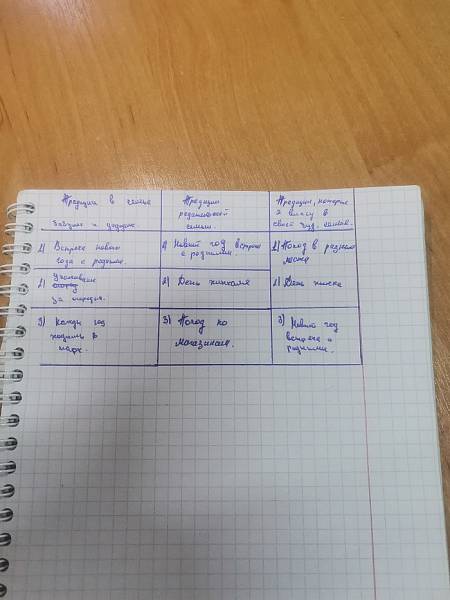 Традиции в семье
бабушки и дедушки
Традиции
родительской
семьи.
Традиции, которые
я внесу в
свою буд. семью.
1) Встреча нового
года с родными.
1) Новый год встреча
с родными.
1) Поход в разные
2)
за огородом.
2) День
2) День
3) Каждый год
ходить в
3) Поход по
магазинам.
3) Новый год
встреча с
родными.